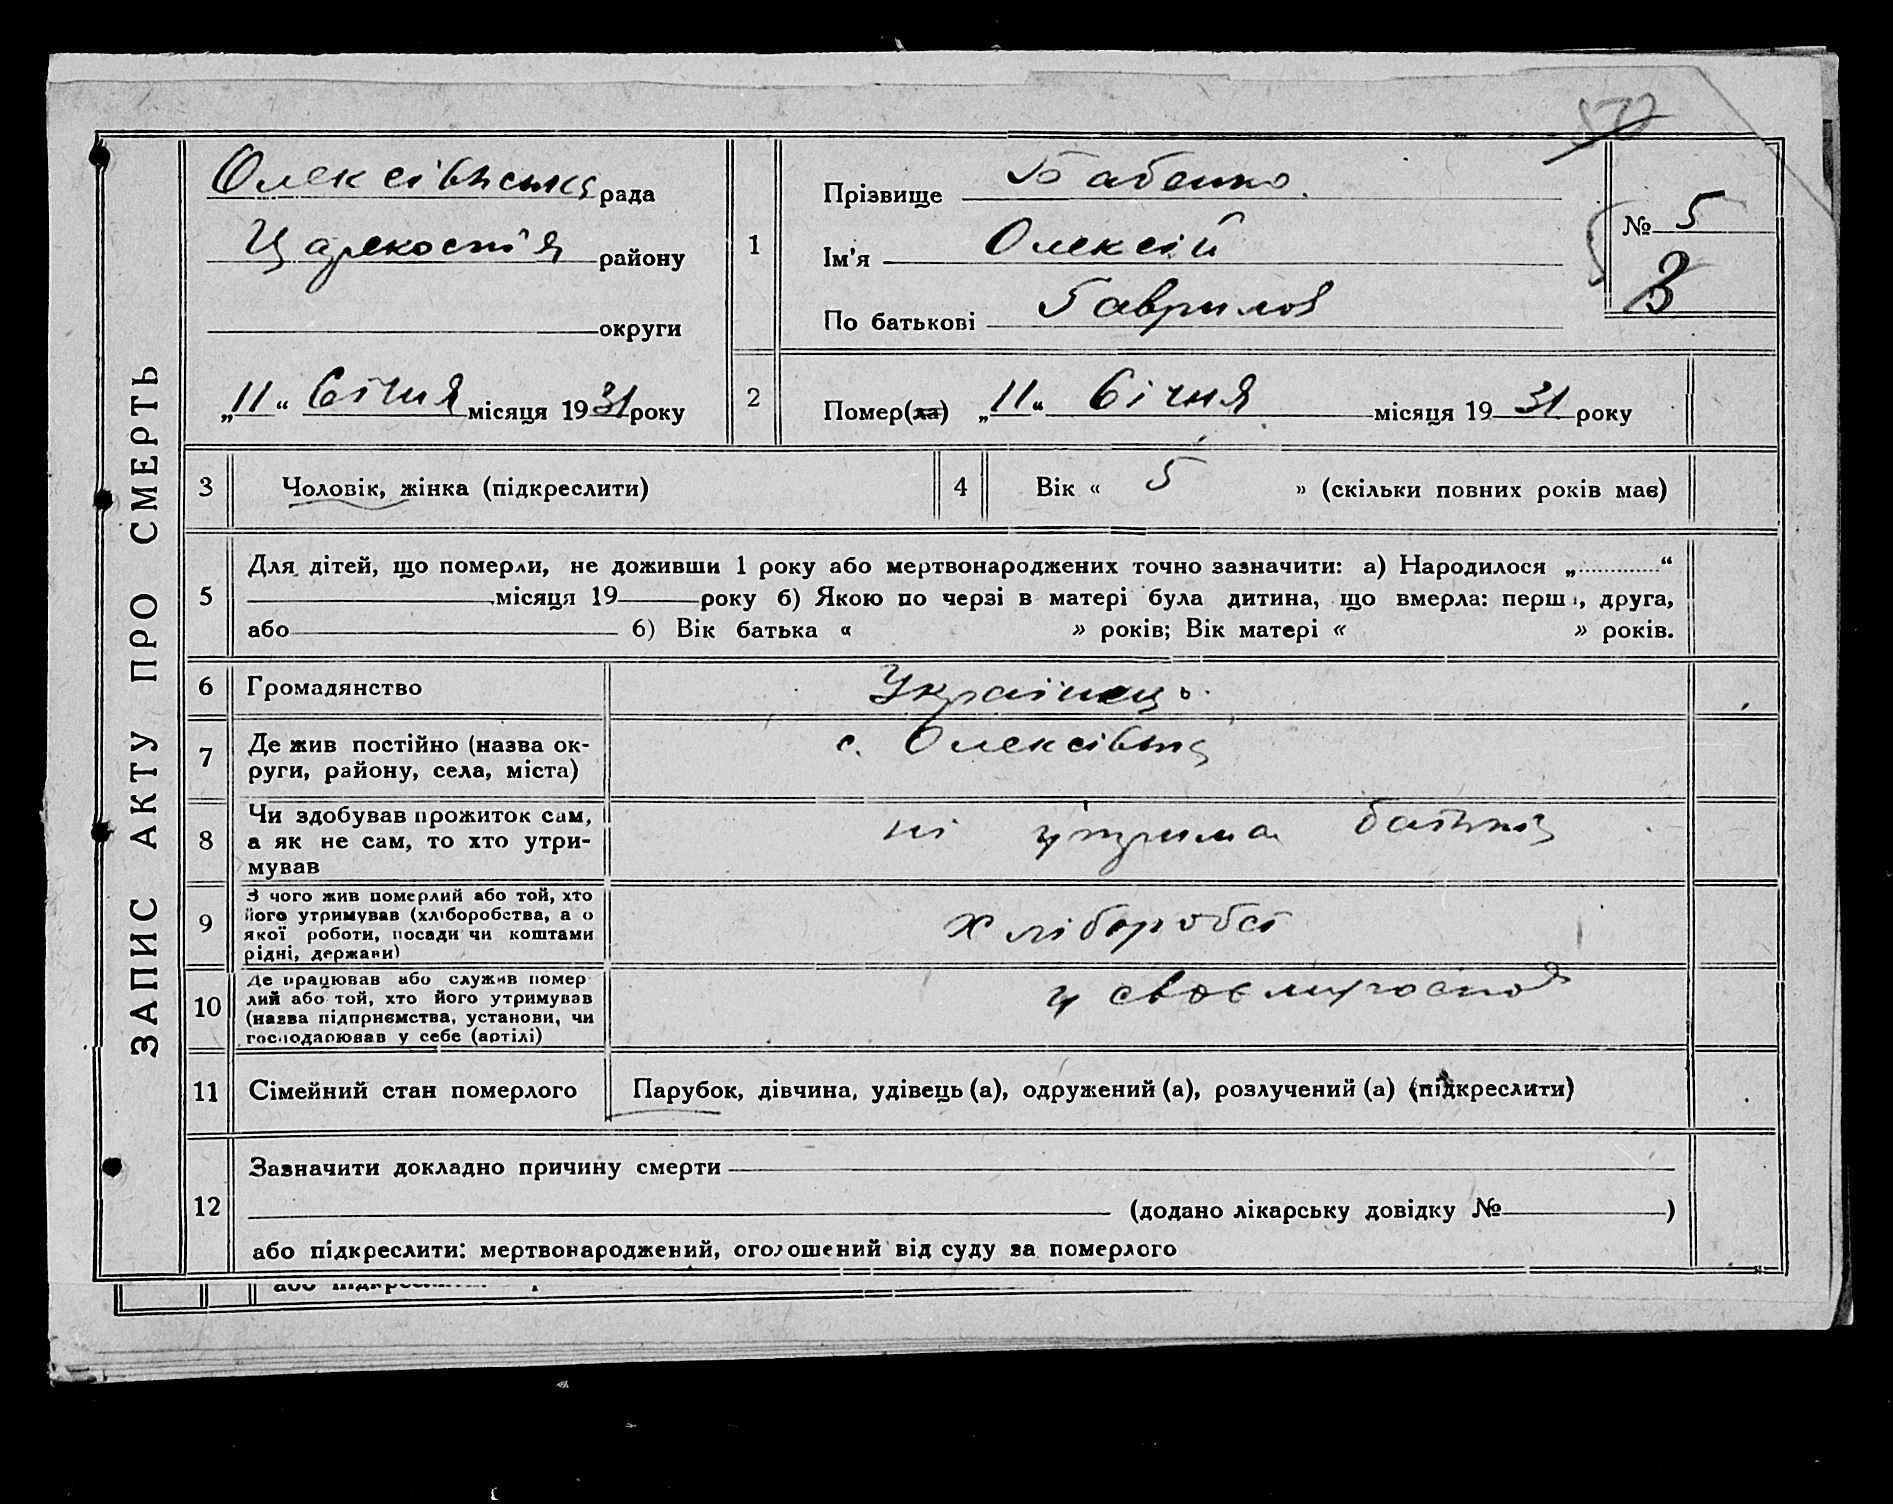 ЗАПИС АКТУ ПРО СМЕРТЬ
Олексівська рада
району
округи
„11“ Січня місяця 1931 року
1
Прізвище Бабенко.
Ім'я Олексій
По батькові Гаврилов
№ 5
3
2
Помер(ла) „11“ Січня місяця 1931 року
3 Чоловік, жінка (підкреслити)
4 Вік « 5 » (скільки повних років має)
5 Для дітей, що померли, не доживши 1 року або мертвонароджених точно зазначити: а) Народилося „ “
місяця 19 року б) Якою по черзі в матері була дитина, що вмерла: перш, друга,
або 6) Вік батька « » років; Вік матері « » років.
6 Громадянство Українець.
7 Де жив постійно (назва ок-
руги, району, села, міста)
с. Олексівка
8 Чи здобував прожиток сам,
а як не сам, то хто утри-
мував
ні утрима батьків
9 З чого жив померлий або той, хто
його утримував (хліборобства, а о
якої роботи, посади чи коштами
рідні, держави)
хліборобст
10 Де працював або служив помер
лий або той, хто його утримував
(назва підприємства, установи, чи
господарював у себе (артілі)
у своєму господ
11 Сімейний стан померлого Парубок, дівчина, удівець (а), одружений (а), розлучений (а) (підкреслити)
12 Зазначити докладно причину смерти
(додано лікарську довідку № )
або підкреслити: мертвонароджений, оголошений від суду за померлого